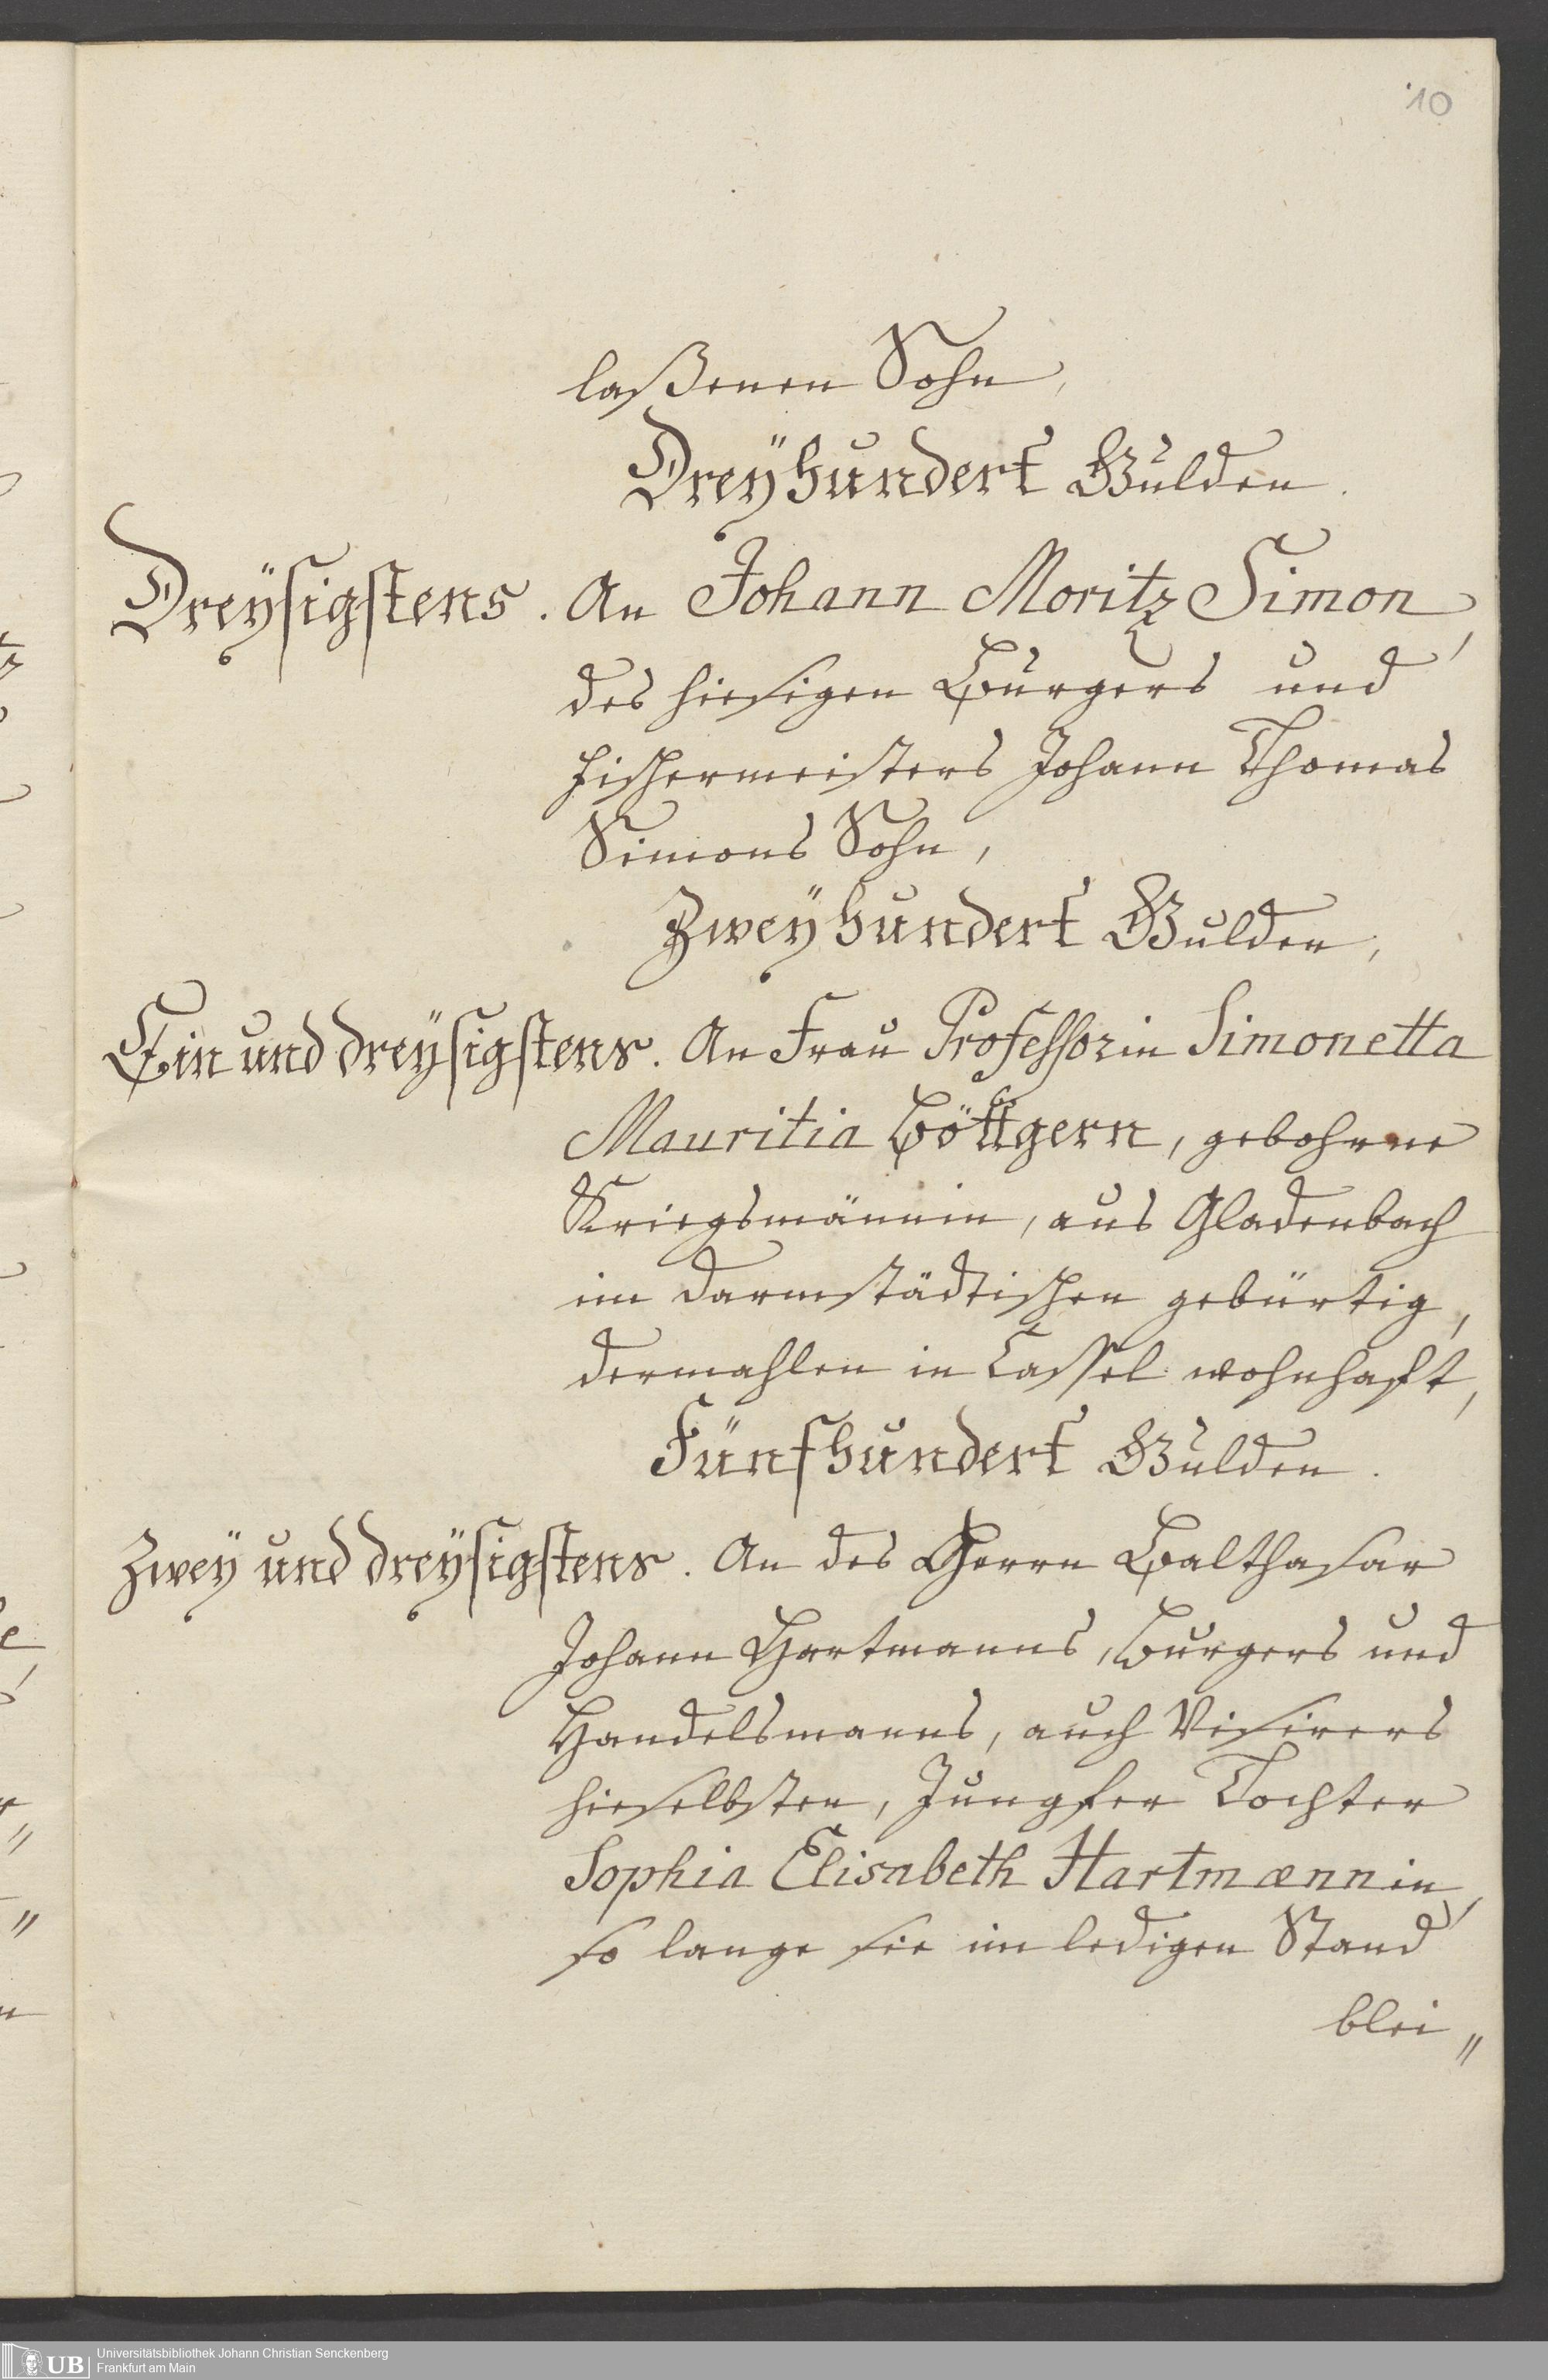 10
laßenen Sohn,
Dreÿhundert Gulden.
Dreÿsigstens. An Johann Moritz Simon,
des hiesigen Burgers und
Fischermeisters Johann Thomas
Simons Sohn,
Zweÿhundert Gulden,
Ein und dreÿsigstens. An Frau Professorin Simonetta
Mauritia Böttgern, gebohrne
Kriegsmännin, aus Gladenbach
im Darmstädtischen gebürtig,
dermahlen in Cassel wohnhafft,
Fünfhundert Gulden.
Zweÿ und dreÿsigstens. An des Herrn Balthasar
Johann Hartmanns, Burgers und
Handelsmanns, auch Visirers
hieselbsten, Jungfer Tochter
Sophia Elisabeth Hartmænnin,
so lange sie im ledigen Stand
blei〃
UB
Universitätsbibliothek Johann Christian Senckenberg
Frankfurt am Main